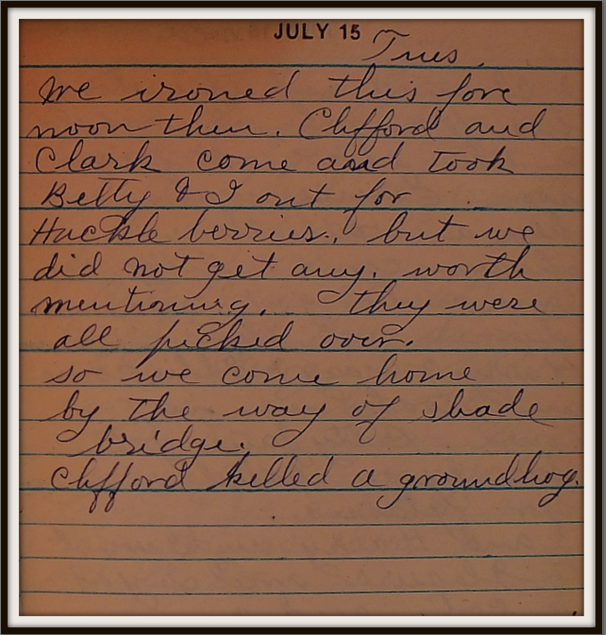 JULY 15
Tues.
We ironed this fore
noon then. Clifford and
Clark come and took
Betty & I out for
Huckle berries., but we
did not get any. worth
mentioning. they were
all picked over.
so we come home
by the way of shade
bridge.
Clifford killed a groundhog.